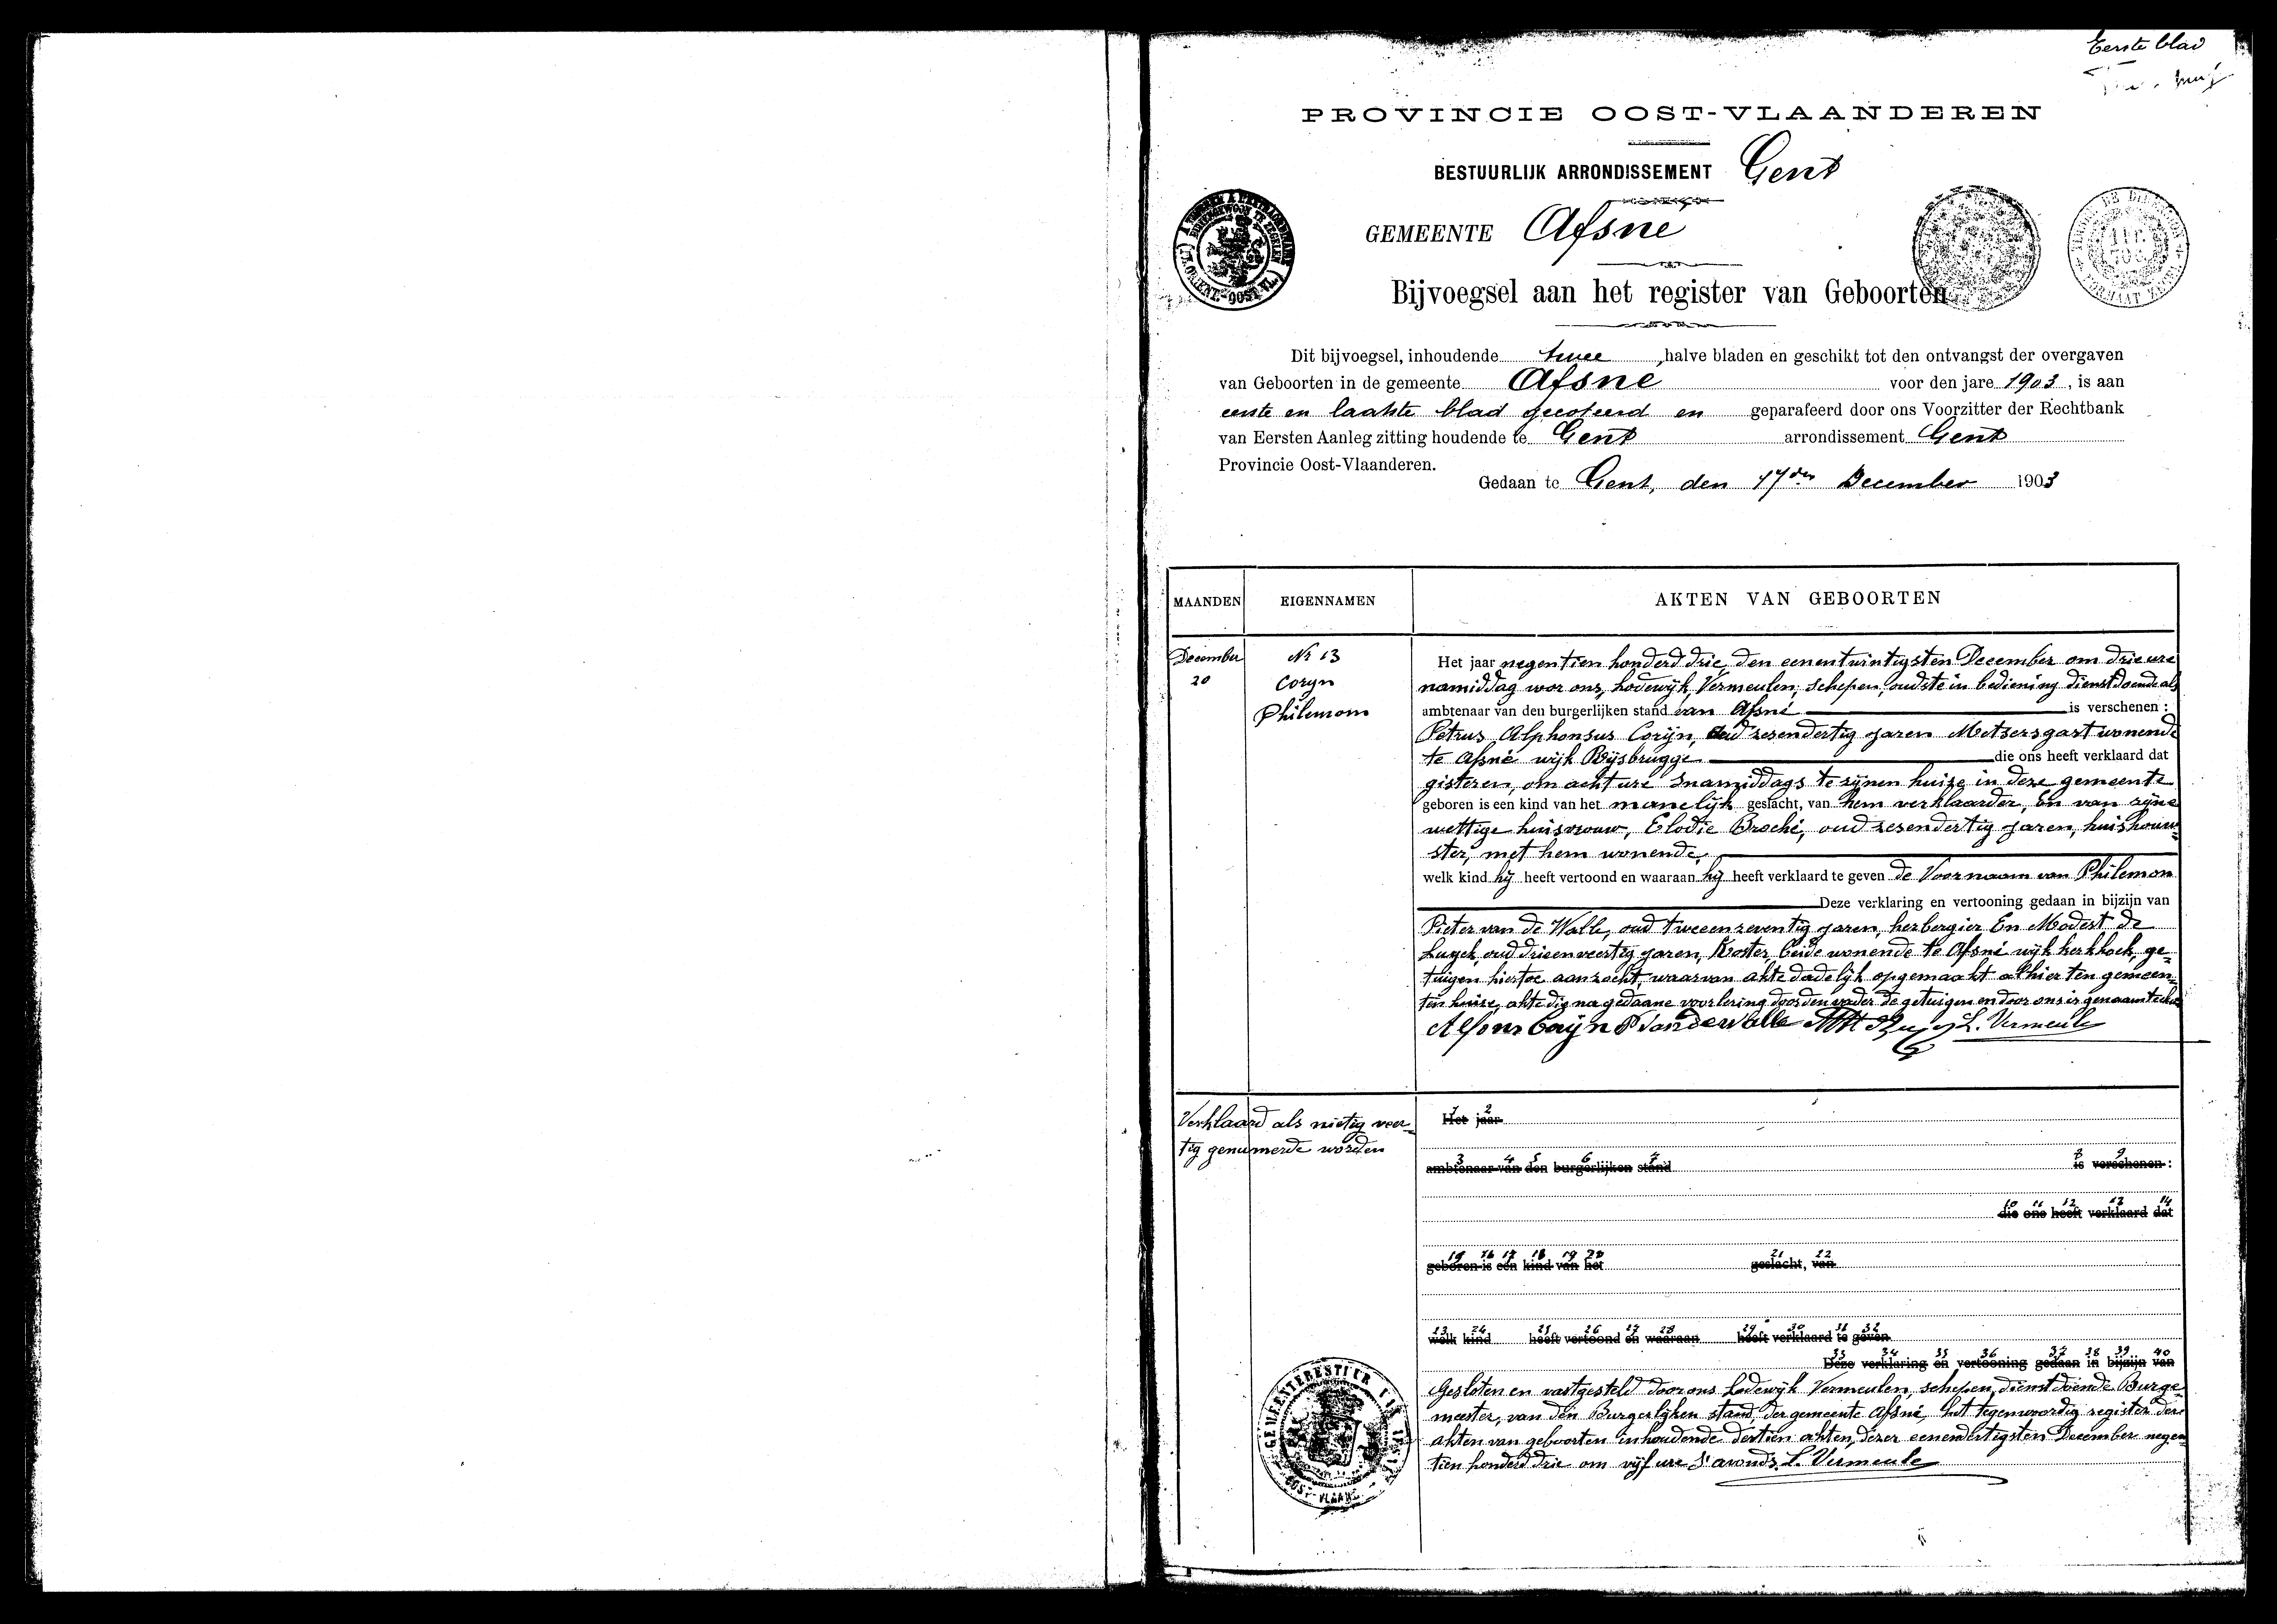 Eerste blad
PROVINCIE OOST-VLAANDEREN
BESTUURLIJK ARRONDISSEMENT Gent
GEMEENTE Afsné
Bijvoegsel aan het register van Geboorten
Dit bijvoegsel, inhoudende twee halve bladen en geschikt tot den ontvangst der overgaven
van Geboorten in de gemeente Afsné voor den jare 1903, is aan
eerste en laatste blad gecoteerd en geparafeerd door ons Voorzitter der Rechtbank
van Eersten Aanleg zitting houdende te Gent arrondissement Gent
Provincie Oost-Vlaanderen.
Gedaan te Gent, den 17den December 1903
MAANDEN EIGENNAMEN AKTEN VAN GEBOORTEN
December
20
Nr 13
Coryn
Philemom
Het jaar negentien honderd drie, den eenentwintigsten December om drie ure
namiddag voor ons, Lodewijk Vermeulen, schepen, oudste in bediening dienstdoende als
ambtenaar van den burgerlijken stand van Afsné is verschenen :
Petrus Alphonsus Corijn, oud zesendertig jaren Metsersgast wonende
te Afsné wijk Bijsbrugge die ons heeft verklaard dat
gisteren, om acht ure snamiddags te zijnen huize in deze gemeente
geboren is een kind van het manelijk geslacht, van hem verklaarder, En van zijne
wettige huisvrouw, Elodie Broché, oud zesendertig jaren, huishouw-
ster, met hem wonende,
welk kind hij heeft vertoond en waaraan hij heeft verklaard te geven de Voornaam van Philemon
Deze verklaring en vertooning gedaan in bijzijn van
Pieter van de Walle, oud tweeenzeventig jaren, herbergier En Modest de
oud drieenveertig jaren, Koster, beide wonende te Afsné wijk kerkhoek, ge-
tuigen hiertoe aanzocht, waarvan akte dadelijk opgemaakt alhier ten gemeen-
ten huize, akte die na gedaane voorlezing door den vader de getuigen en door ons is genaamteekend
Alfons Corijn P Vandewalle L. Vermeule
Verklaard als nietig veer-
tig genumerde worden
1 2
Het jaar
3 4 5 6 7 8 9
ambtenaar van den burgerlijken stand is verschenen :
10 11 12 13 14
die ons heeft verklaard dat
15 16 17 18 19 20 21 22
geboren is een kind van het geslacht, van
23 24 25 26 27 28 29 30 31 32
welk kind heeft vertoond en waaraan heeft verklaard te geven
33 34 35 36 37 38 39 40
Deze verklaring en vertooning gedaan in bijzijn van
Gesloten en vastgesteld door ons Lodewijk Vermeulen, schepen, dienstdoende Burge-
meester, van den Burgerlijken stand, der gemeente Afsné, het tegenwoordig register der
akten van geboorten inhoudende dertien akten, dezer eenendertigsten December negen
tien honderd drie om vijf ure s'avonds L. Vermeule
GEMEENTEBESTUUR
OOST-VLAAND.